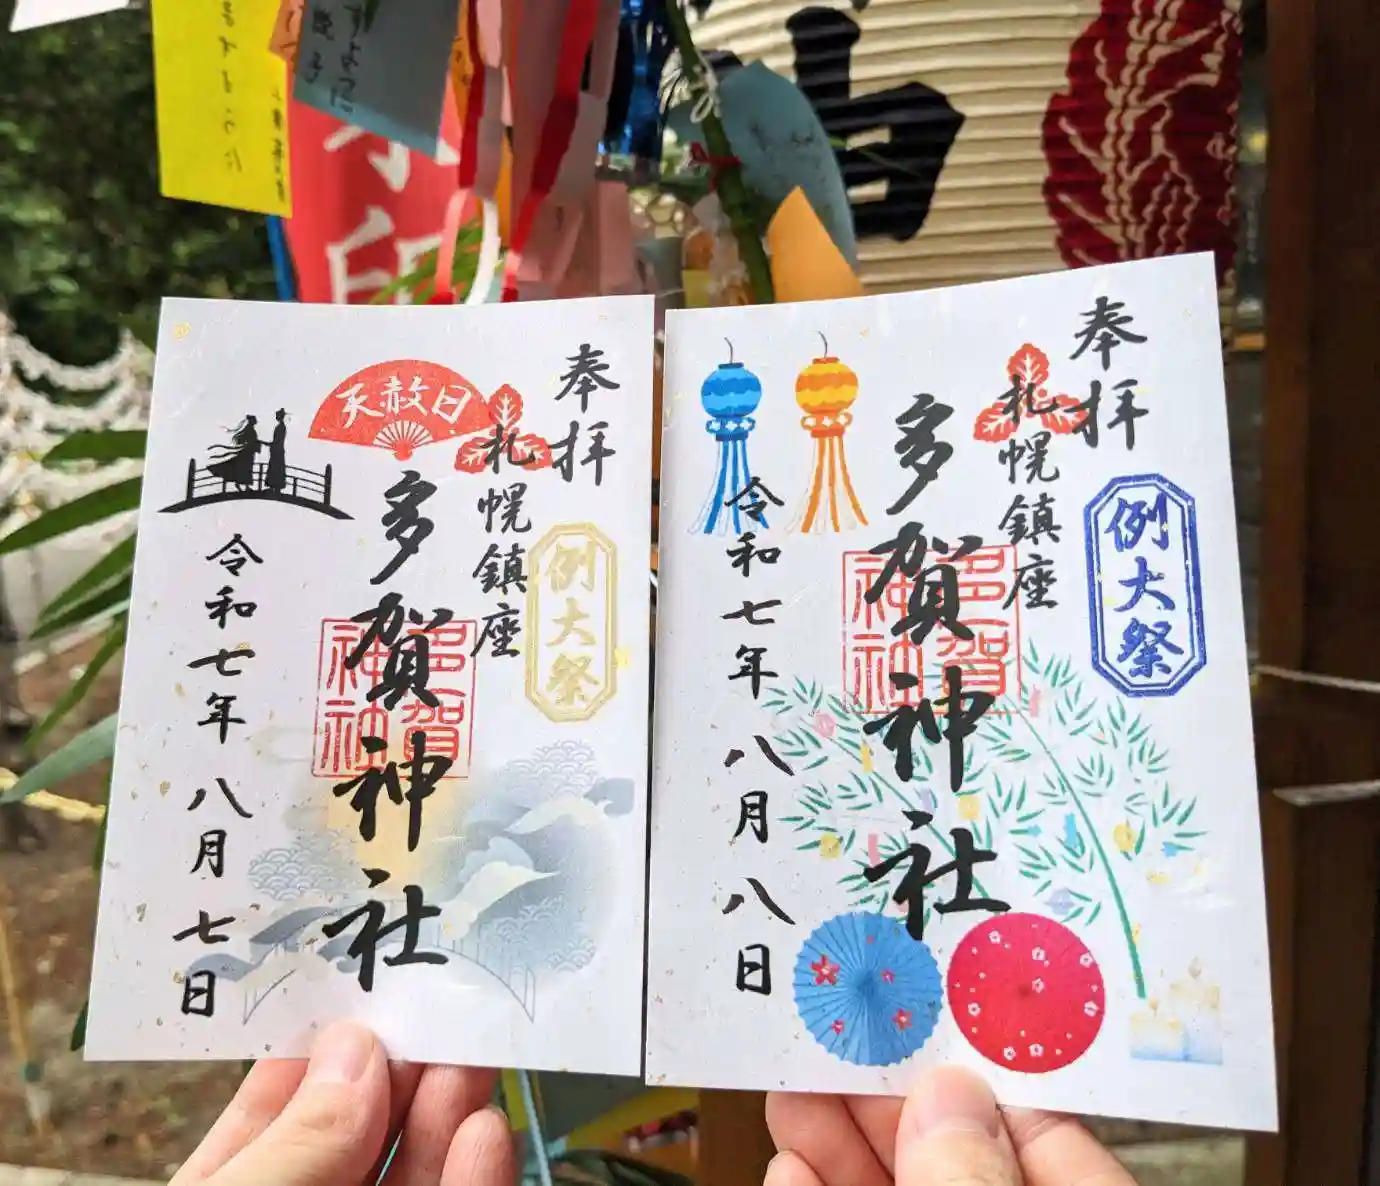 天赦日
奉拝
札幌鎮座
例大祭
多賀神社
多賀
神社
令和七年 八月 七日
奉拝
札幌鎮座
例大祭
多賀神社
多賀
神社
令和七年 八月 八日